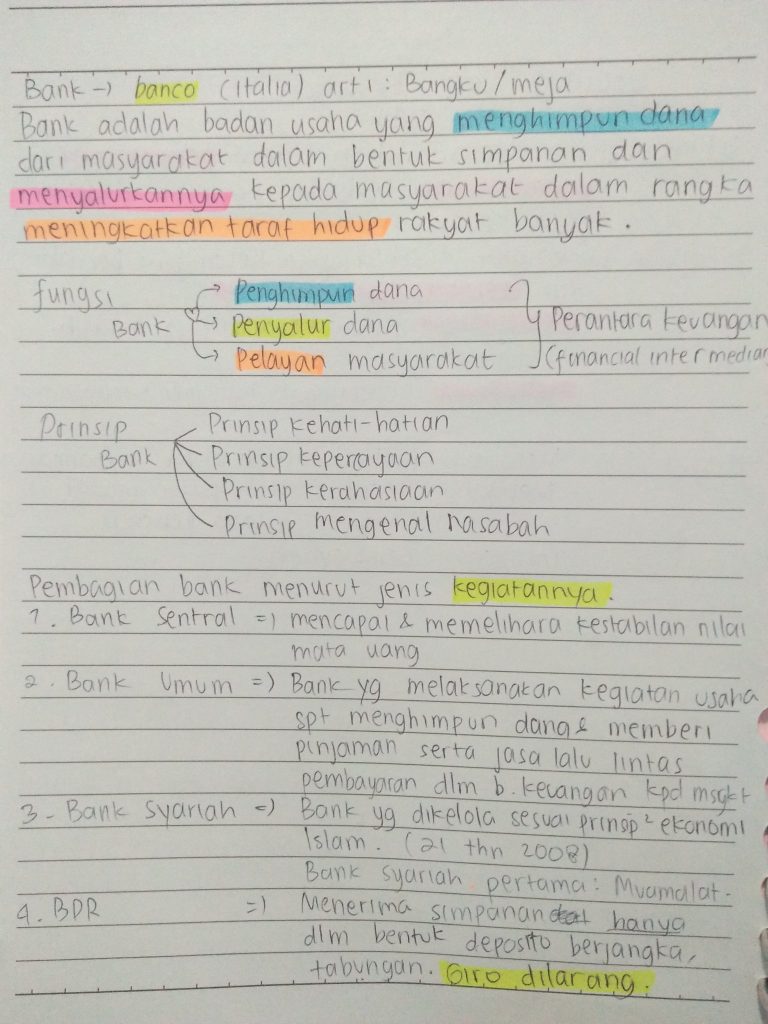 Bank → banco (Italia) arti : Bangku/meja
Bank adalah badan usaha yang menghimpun dana
dari masyarakat dalam bentuk simpanan dan
menyalurkannya kepada masyarakat dalam rangka
meningkatkan taraf hidup rakyat banyak.
fungsi
Bank
→ Penghimpun dana
→ Penyalur dana
→ Pelayan masyarakat
Perantara keuangan
(financial intermediar
Prinsip
Bank
Prinsip kehati-hatian
Prinsip kepercayaan
Prinsip kerahasiaan
Prinsip mengenal nasabah
Pembagian bank menurut jenis kegiatannya.
1. Bank Sentral => mencapai & memelihara kestabilan nilai
mata uang
2. Bank Umum => Bank yg melaksanakan kegiatan usaha
spt menghimpun dana & memberi
pinjaman serta jasa lalu lintas
pembayaran dlm b. keuangan kpd msykt
3. Bank Syariah => Bank yg dikelola sesuai prinsip² ekonomi
Islam. (21 thn 2008)
Bank syariah pertama : Muamalat.
4. BPR => Menerima simpanan hanya
dlm bentuk deposito berjangka,
tabungan. Giro dilarang.